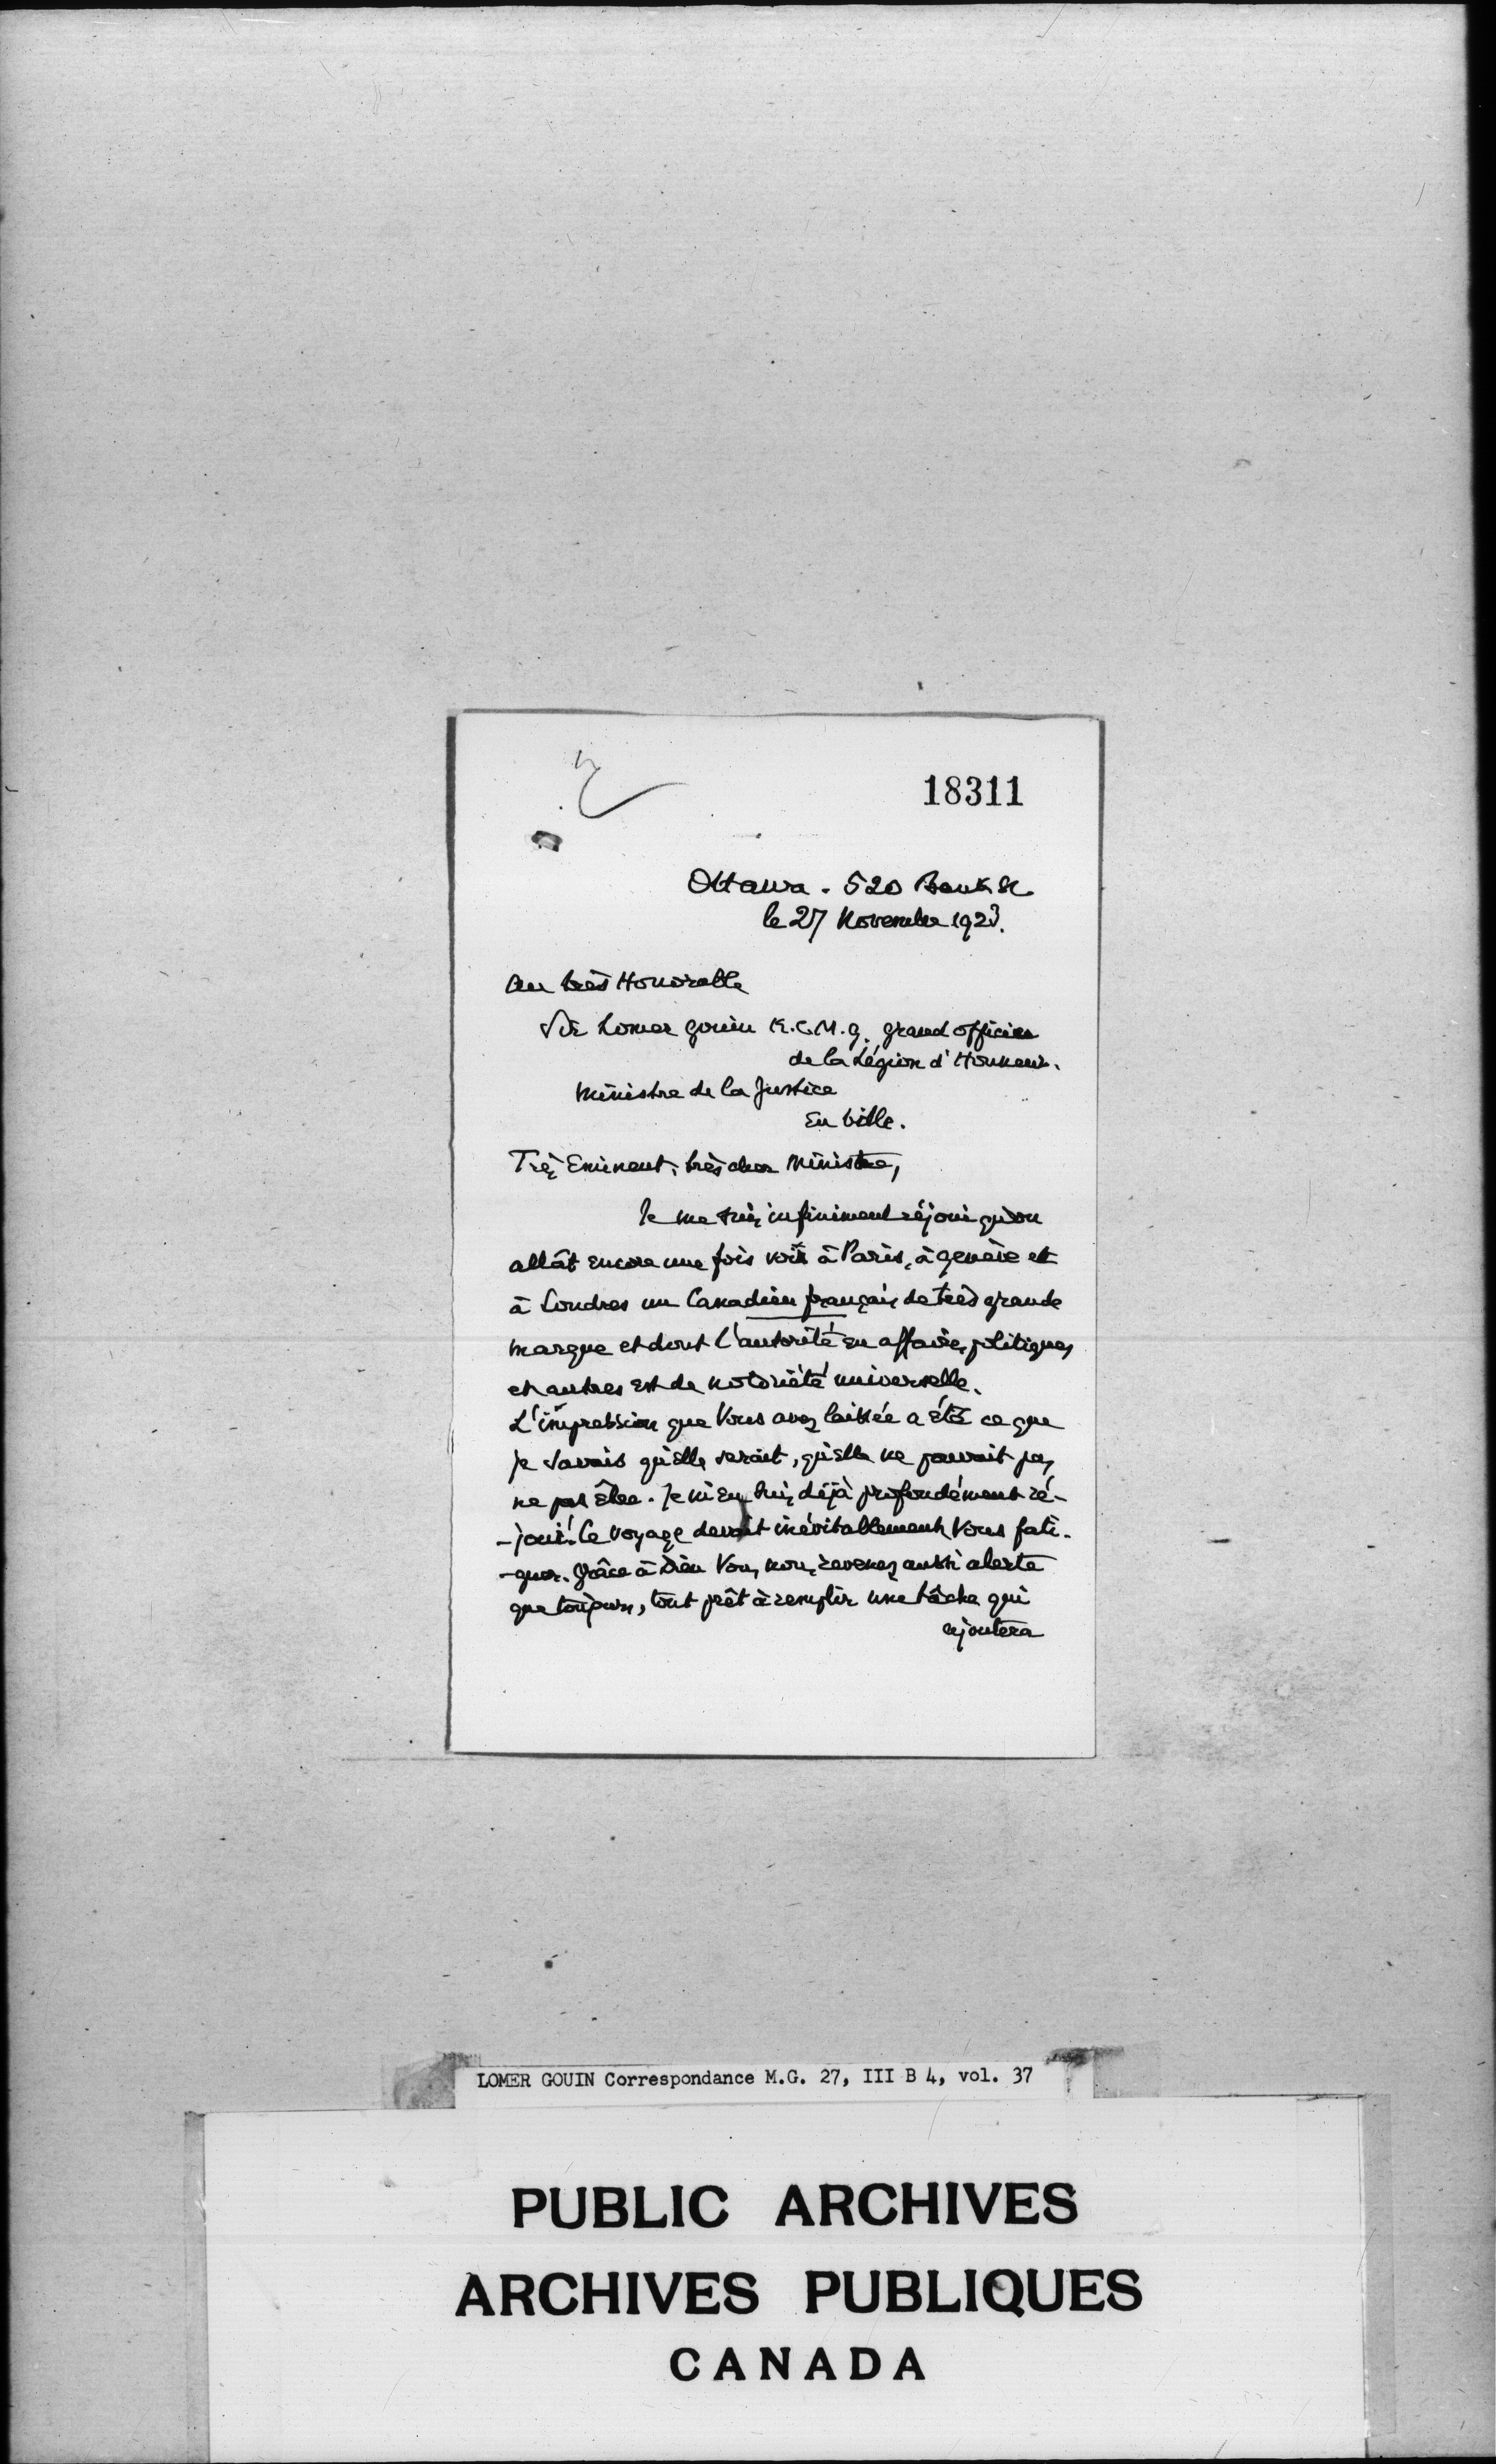 18311
Ottawa. 520 Bank St.
le 27 Novembre 1923.
Au très Honorable
Sir Lomer Gouin K.C.M.G. Grand officier
de la Légion d'Honneur.
Ministre de la Justice
En Ville.
Très Eminent, très cher Ministre,
Je me suis infiniment réjoui qu'on
allât encore une fois voir à Paris, à Genève et
à Londres un Canadien français de très grande
marque et dont l'autorité en affaires politiques
et autres est de notoriété universelle.
L'impression que Vous avez laissée a été ce que
je savais qu'elle serait, qu'elle ne pouvait pas
ne pas être. Je m'en suis déjà profondément ré-
-joui. Le voyage devait inévitablement Vous fati-
-guer. Grâce à Dieu Vous nous revenez aussi alerte
que toujours, tout prêt à remplir une tâche qui
ajoutera
LOMER GOUIN Correspondance M.G. 27, III B 4, vol. 37
PUBLIC ARCHIVES
ARCHIVES PUBLIQUES
CANADA